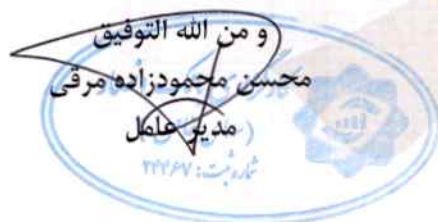 و من الله التوفیق
محسن محمودزاده مرقی
مدیر عامل
شماره ثبت: ۲۴۴۶۷